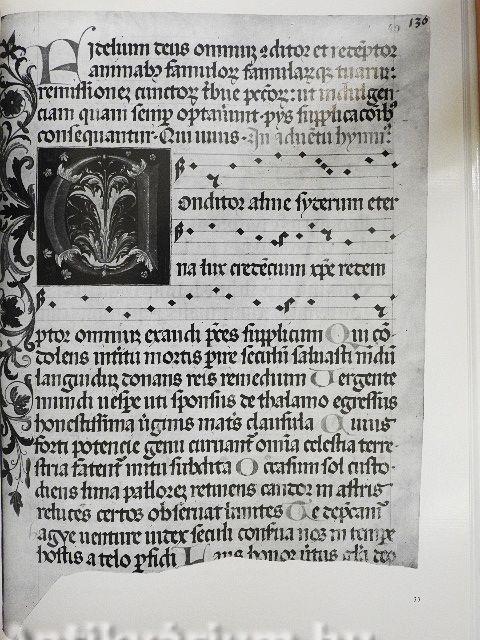 136
Fidelium deus omniuz 2ditor et redēptor
animabꝫ famuloꝝ famulaꝝqꝫ tuarum
remissionez cunctoꝝ tbue peccoꝝ: ut indulgen
ciam quam semp optauerunt pijs supplicacoibꝰ
consequantur. Qui uiuis. In aduētu hymnꝰ
Conditor alme syderum eter
na lux credēcium xp̄e redem
ptor omniuz exaudi p̄ces supplicum Qui cō-
dolens interitu mortis perire seculū saluasti mūdū
languiduz donans reis remedium Vergente
mundi uespe uti sponsus de thalamo egressus
honestissima uirginis matris clausula Cuius
forti potencie genu curuant omīa celestia terre-
stria fatentur nutu subdita Occasum sol custo-
diens luna pallorez retinens candor in astris
relucēs certos obseruat limites Te deprecamur
agye uenture iudex seculi conserua nos in tempore
hostis a telo perfidi Laus honor uirtus gloria deo
55
Antikvárium.hu